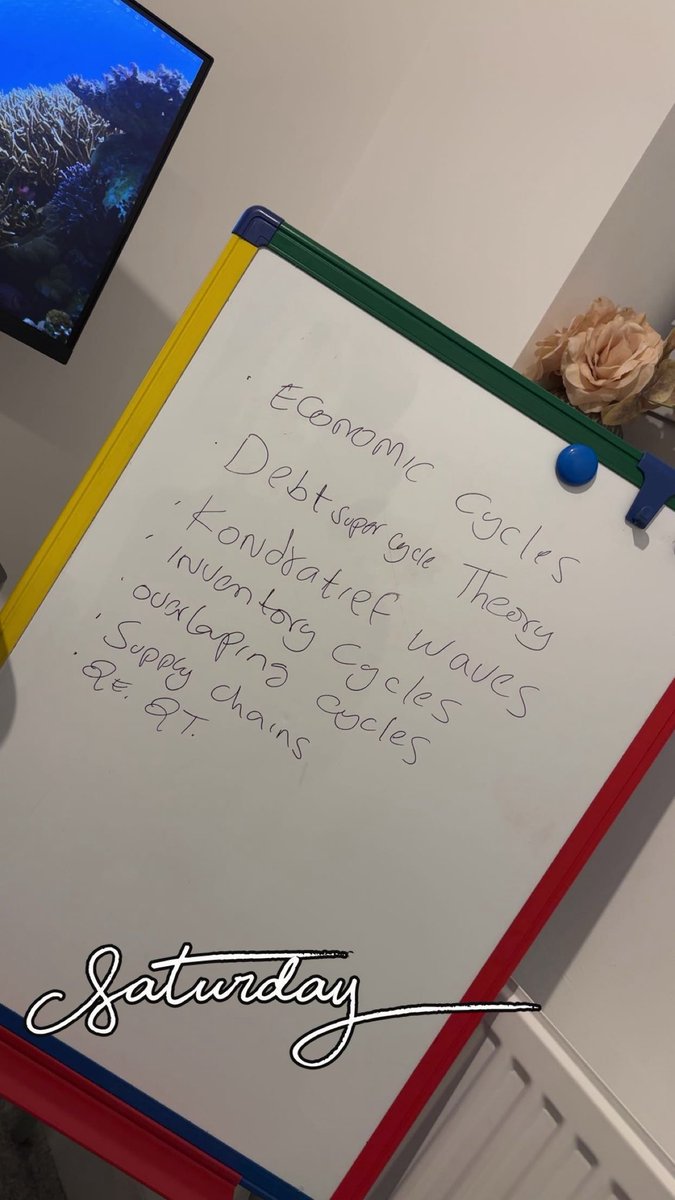 · Economic Cycles
· Debt super cycle Theory
· Kondratief waves
· inventory cycles
· overlaping cycles
· Supply chains
· QE. QT.
Saturday